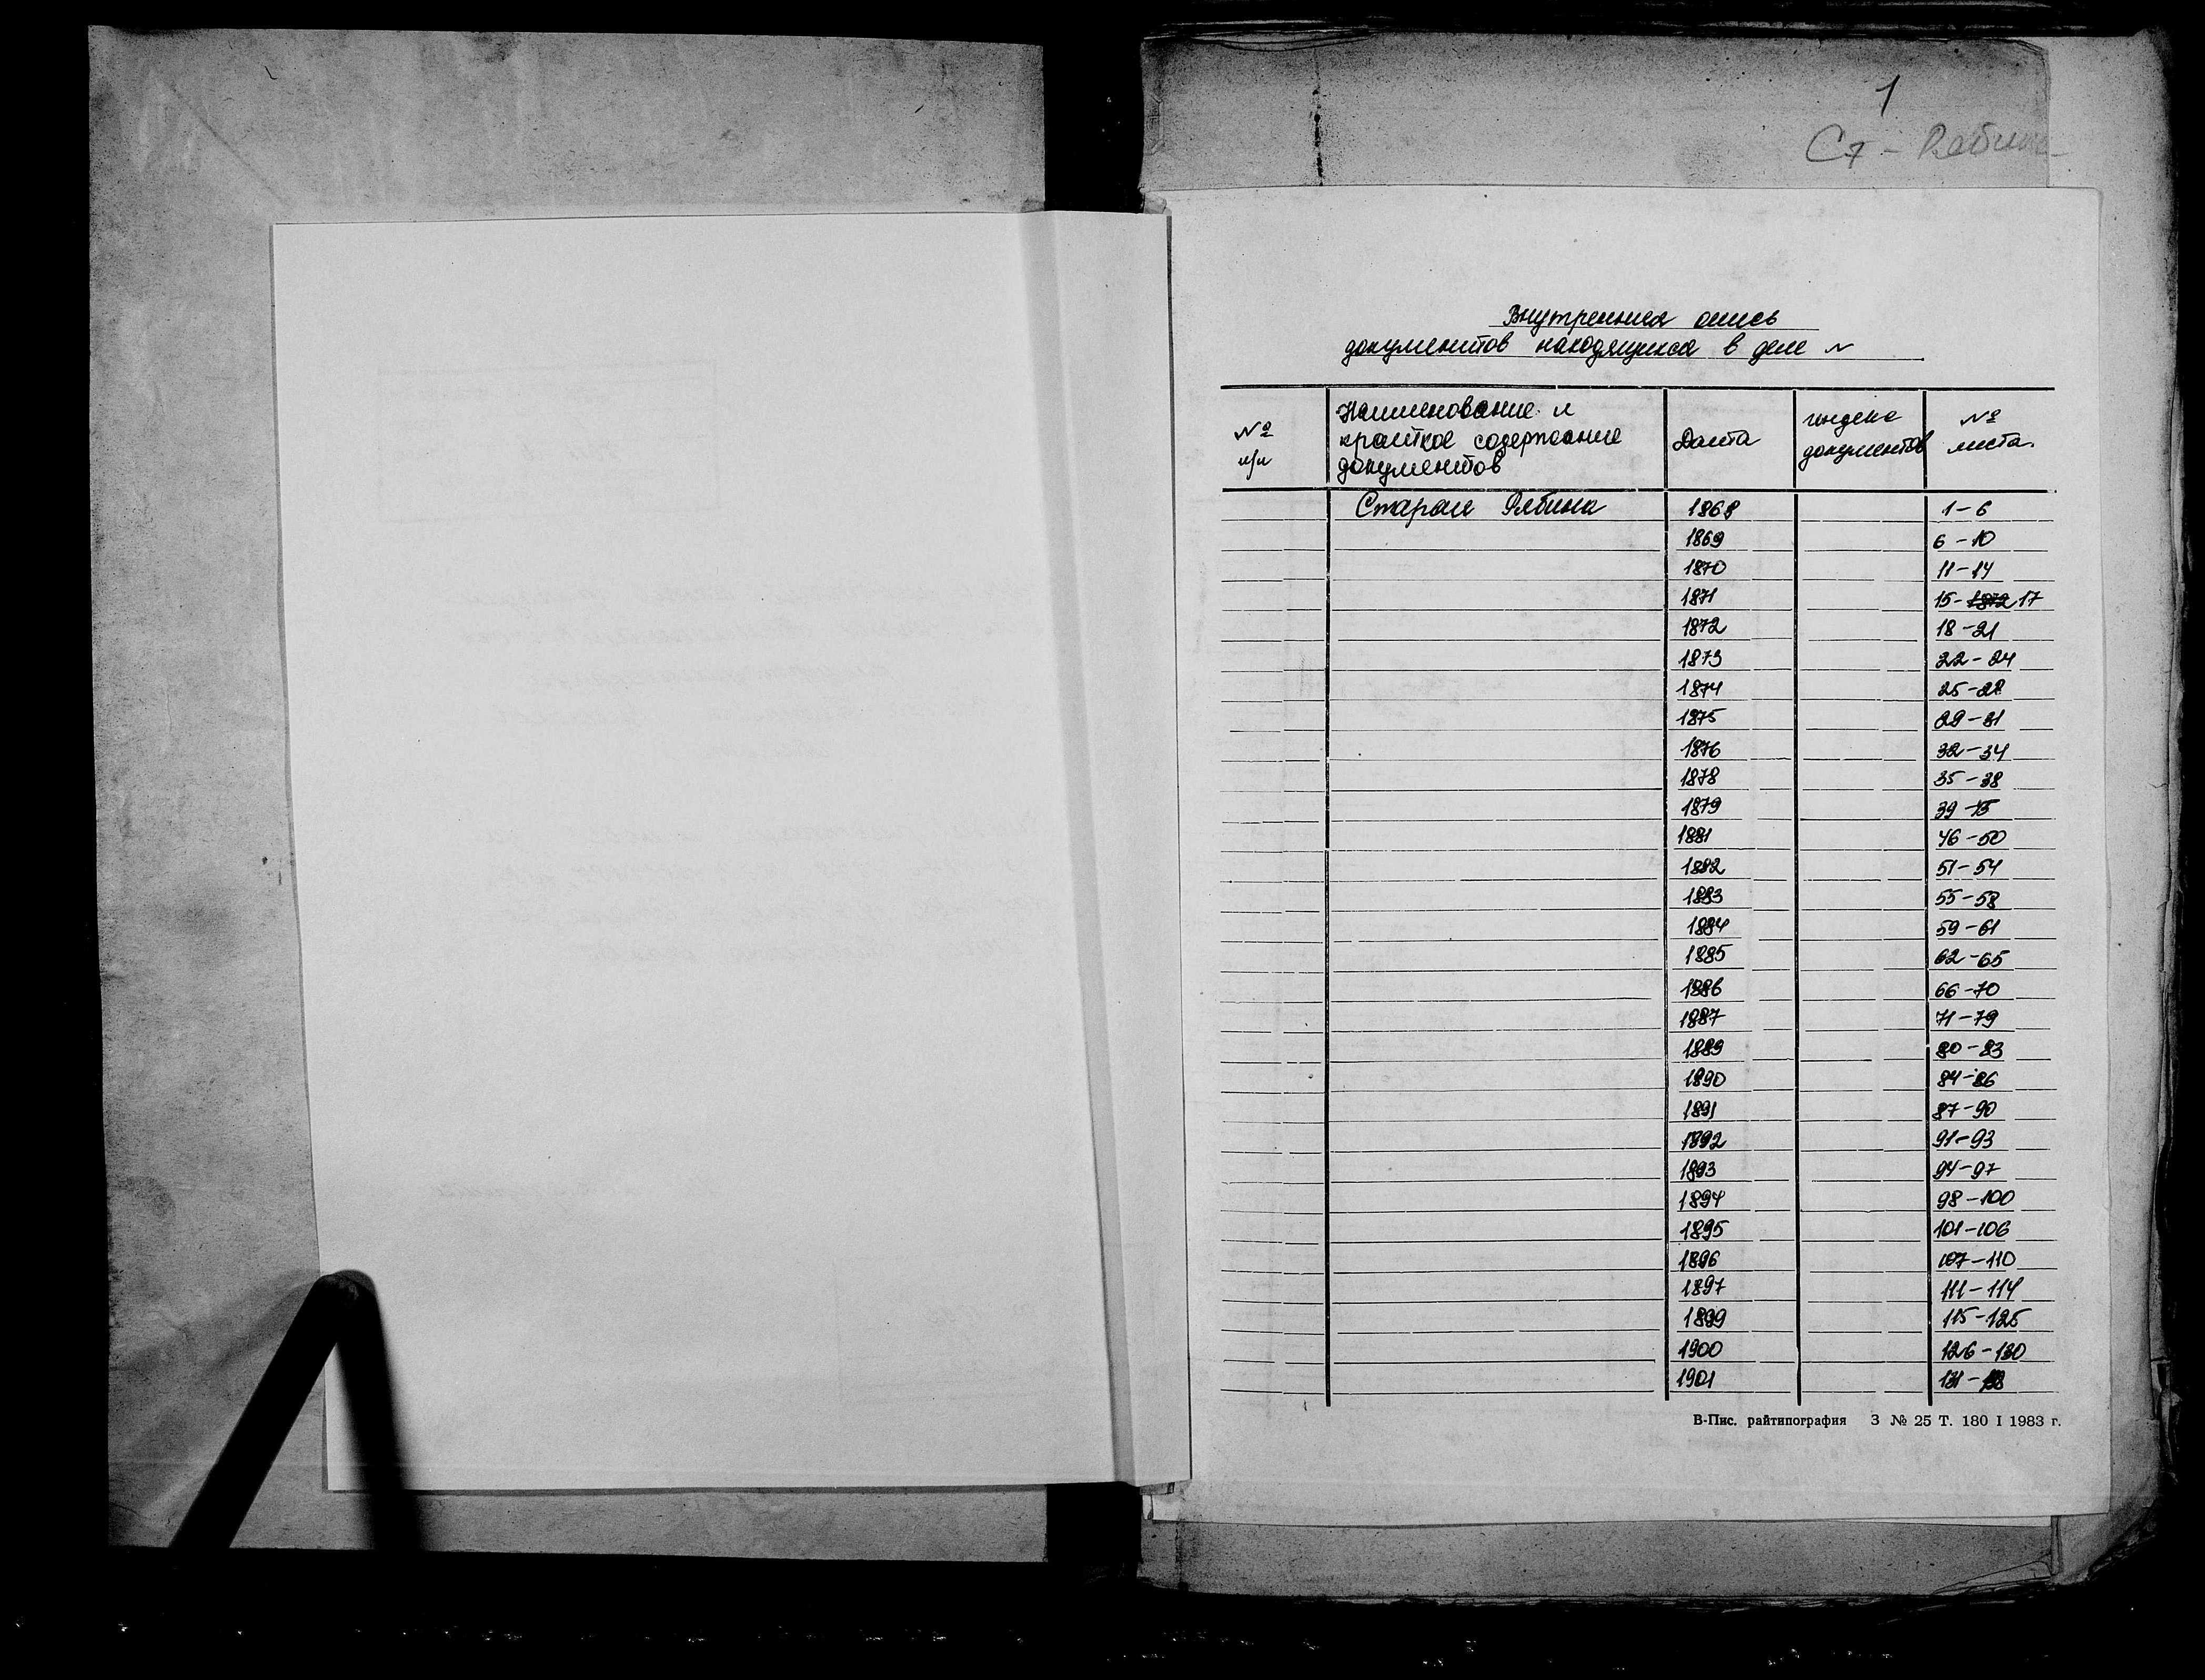 1
Ст - Рябина
Внутренняя опись
документов находящихся в деле №
№ п/п
Наименование и краткое содержание документов
Дата
индекс документов
№ листа.
Старая Рябина 1868 1-6
1869 6-10
1870 11-14
1871 15-1872 17
1872 18-21
1873 22-24
1874 25-28
1875 29-31
1876 32-34
1878 35-38
1879 39-45
1881 46-50
1882 51-54
1883 55-58
1884 59-61
1885 62-65
1886 66-70
1887 71-79
1889 80-83
1890 84-86
1891 87-90
1892 91-93
1893 94-97
1894 98-100
1895 101-106
1896 107-110
1897 111-114
1899 115-125
1900 126-130
1901 131-
В-Пис. райтипография З № 25 Т. 180 I 1983 г.